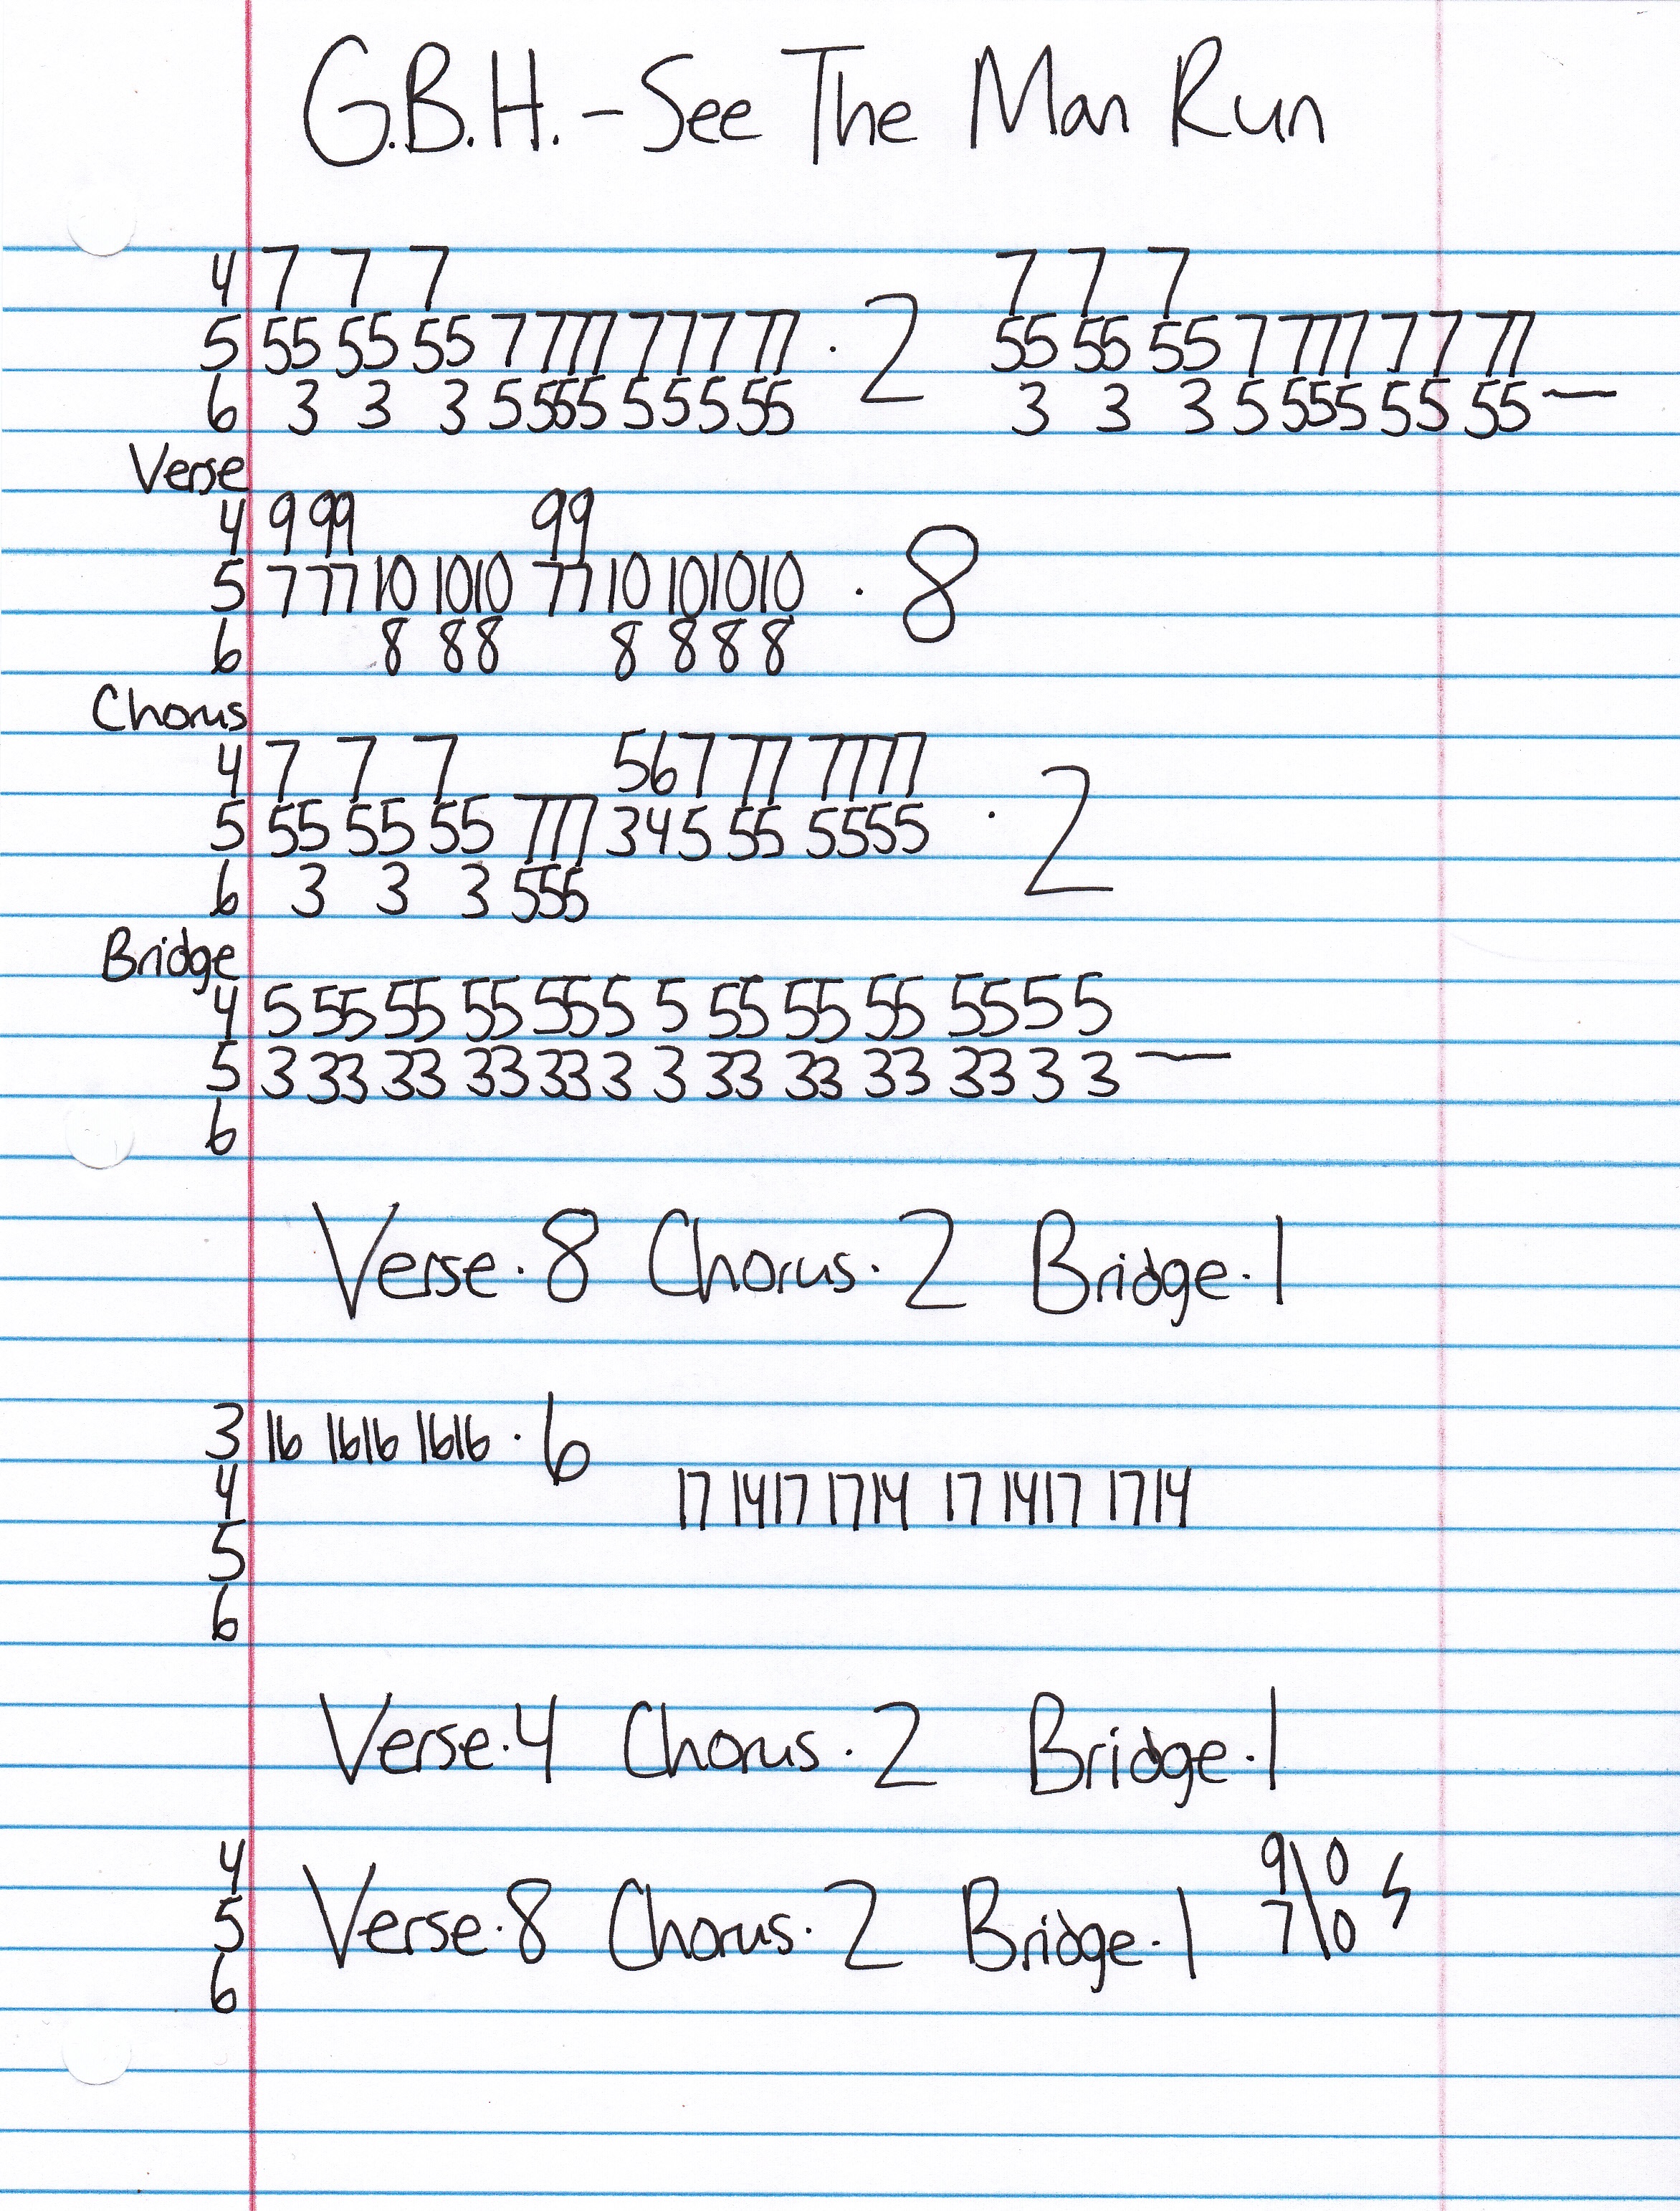 G.B.H. - See The Man Run
4 7 7 7 7 7 7
5 55 55 55 7 777 7 7 7 77 · 2 55 55 55 7 777 7 7 77
6 3 3 3 5 555 5 5 5 55 3 3 3 5 555 55 55 —
Verse
4 9 99 99
5 7 77 10 1010 77 10 101010 · 8
6 8 88 8 888
Chorus
4 7 7 7 567 77 7777
5 55 55 55 777 345 55 5555 · 2
6 3 3 3 555
Bridge
4 5 55 55 55 555 5 55 55 55 5555
5 3 33 33 33 333 3 33 33 33 33 3 3 —
6
Verse · 8 Chorus · 2 Bridge · 1
3 16 1616 1616 · 6
4 17 1417 1714 17 1417 1714
5
6
Verse · 4 Chorus · 2 Bridge · 1
4 9\0
5 Verse · 8 Chorus · 2 Bridge · 1 7\0
6